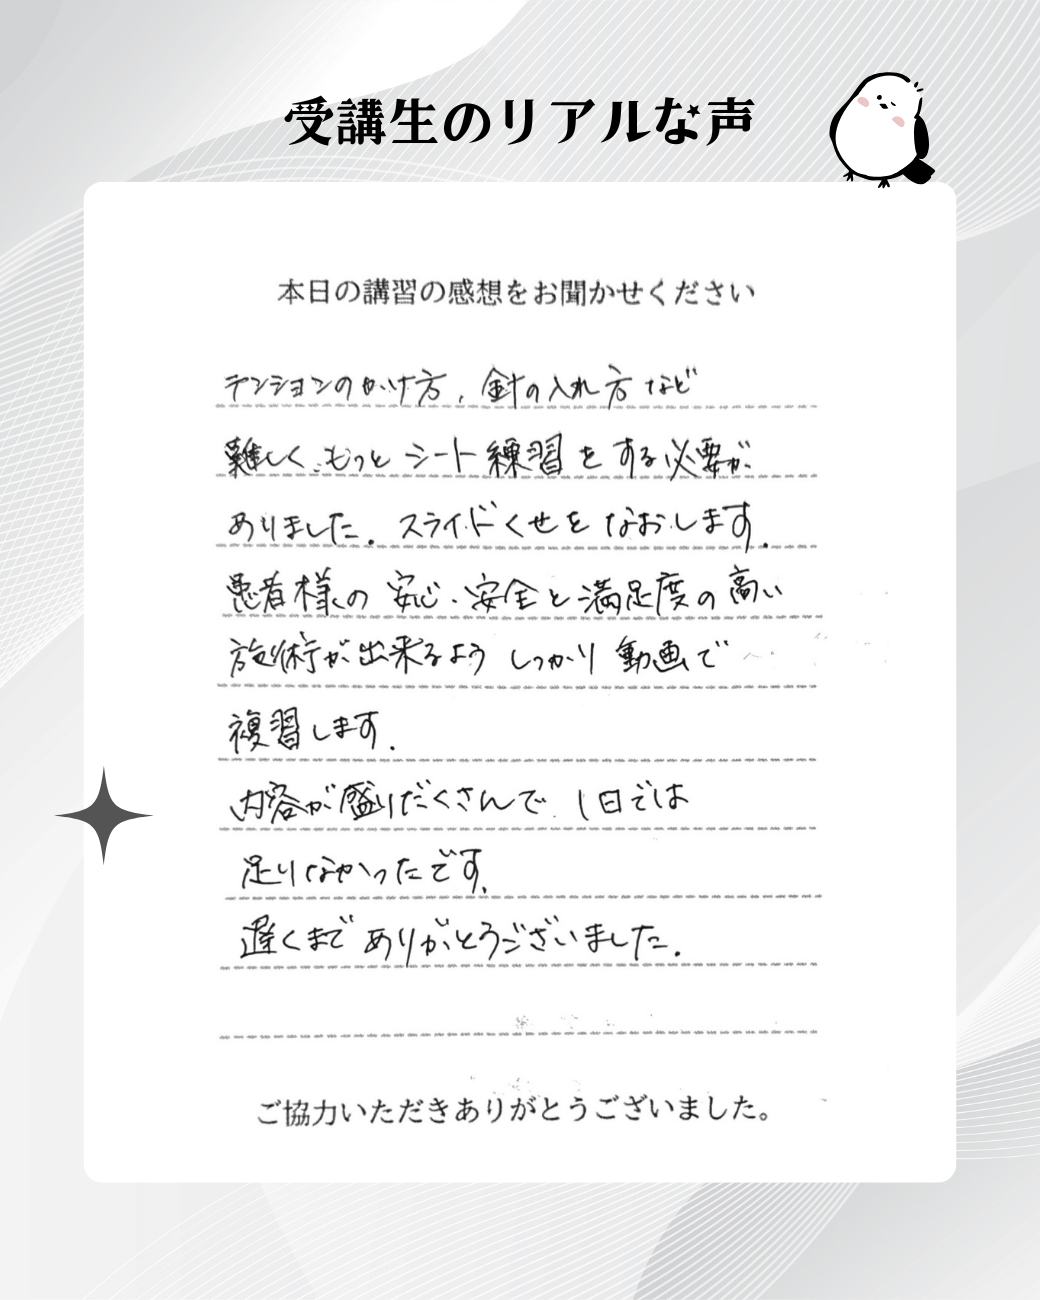 受講生のリアルな声
本日の講習の感想をお聞かせください
テンションのかけ方、針の入れ方など
難しく、もっとシート練習をする必要が
ありました。スライドくせをなおします。
患者様の安心・安全と満足度の高い
施術が出来るようしっかり動画で
複習します。
内容が盛りだくさんで、1日では
足りなかったです。
遅くまでありがとうございました。
ご協力いただきありがとうございました。